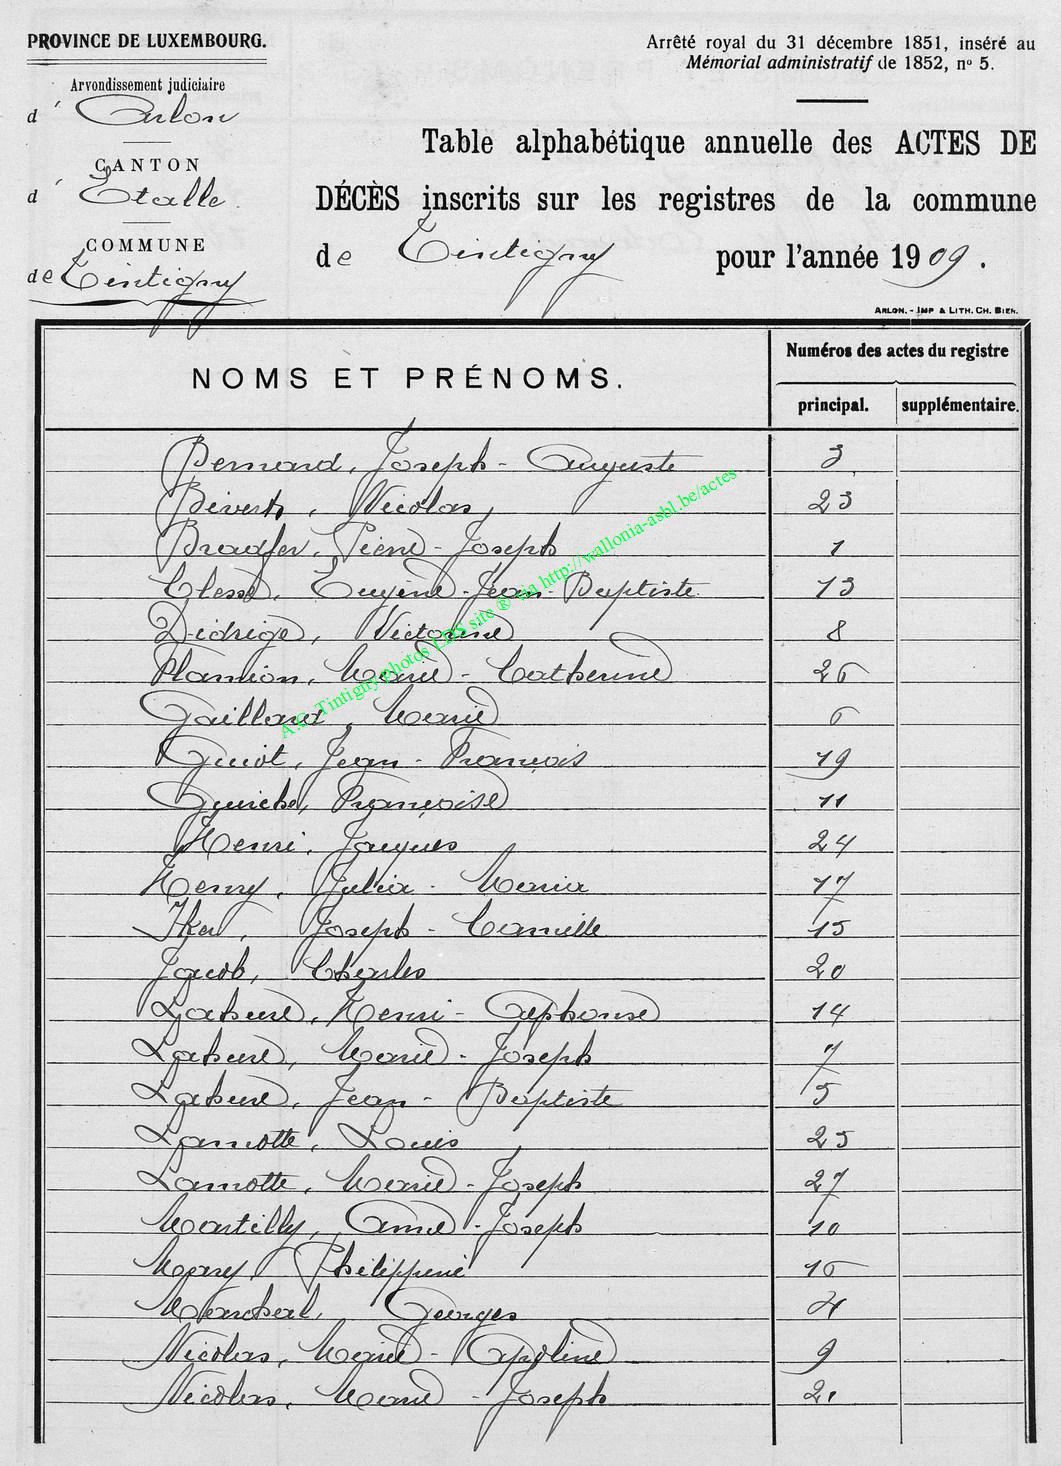 PROVINCE DE LUXEMBOURG.
Arrondissement judiciaire
d' Arlon
CANTON
d' Etalle.
COMMUNE
de Tintigny
Arrêté royal du 31 décembre 1851, inséré au
Mémorial administratif de 1852, nº 5.
Table alphabétique annuelle des ACTES DE
DÉCÈS inscrits sur les registres de la commune
de Tintigny pour l'année 1909.
ARLON. - IMP & LITH. CH. BIEN.
NOMS ET PRÉNOMS.
Numéros des actes du registre
principal. supplémentaire.
Bernard, Joseph-Auguste 3
Biverts, Nicolas, 23
Bradfer, Pierre-Joseph 1
Clesse, Eugène-Jean-Baptiste 13
Didrige, Victorine 8
Flamion, Marie-Catherine 26
Gaillard, Marie 6
Guiot, Jean-François 19
Françoise 11
Henri, Jacques 24
Henry, Julia-Maria 17
Joseph-Camille 15
Jacob, Charles 20
Lahure, Henri-Alphonse 14
Lahure, Marie-Joseph 7
Lahure, Jean-Baptiste 5
Lamotte, Louis 25
Lamotte, Marie-Joseph 27
Martilly, Anne-Joseph 10
Mary, Philippine 16
Marchal, Georges 4
Nicolas, Marie-Apoline 9
Nicolas, Marie-Joseph 21
A.C. Tintigny photos LDS site ® via http://wallonia-asbl.be/actes